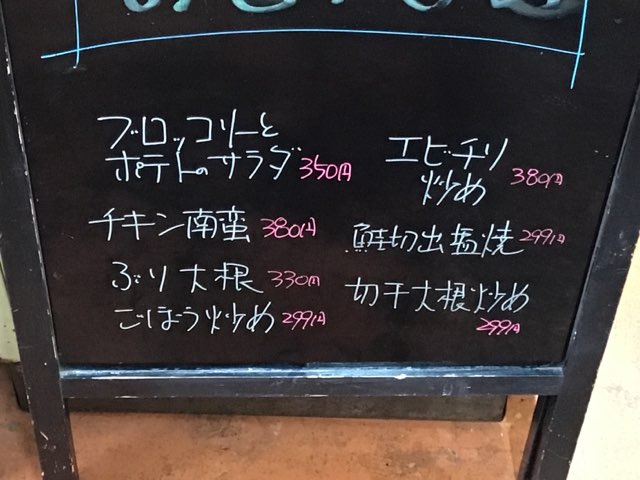 ブロッコリーと
ポテトのサラダ 350円
チキン南蛮 380円
ぶり大根 330円
ごぼう炒め 299円
エビチリ
炒め 380円
鮭切出塩焼 299円
切干大根炒め
299円